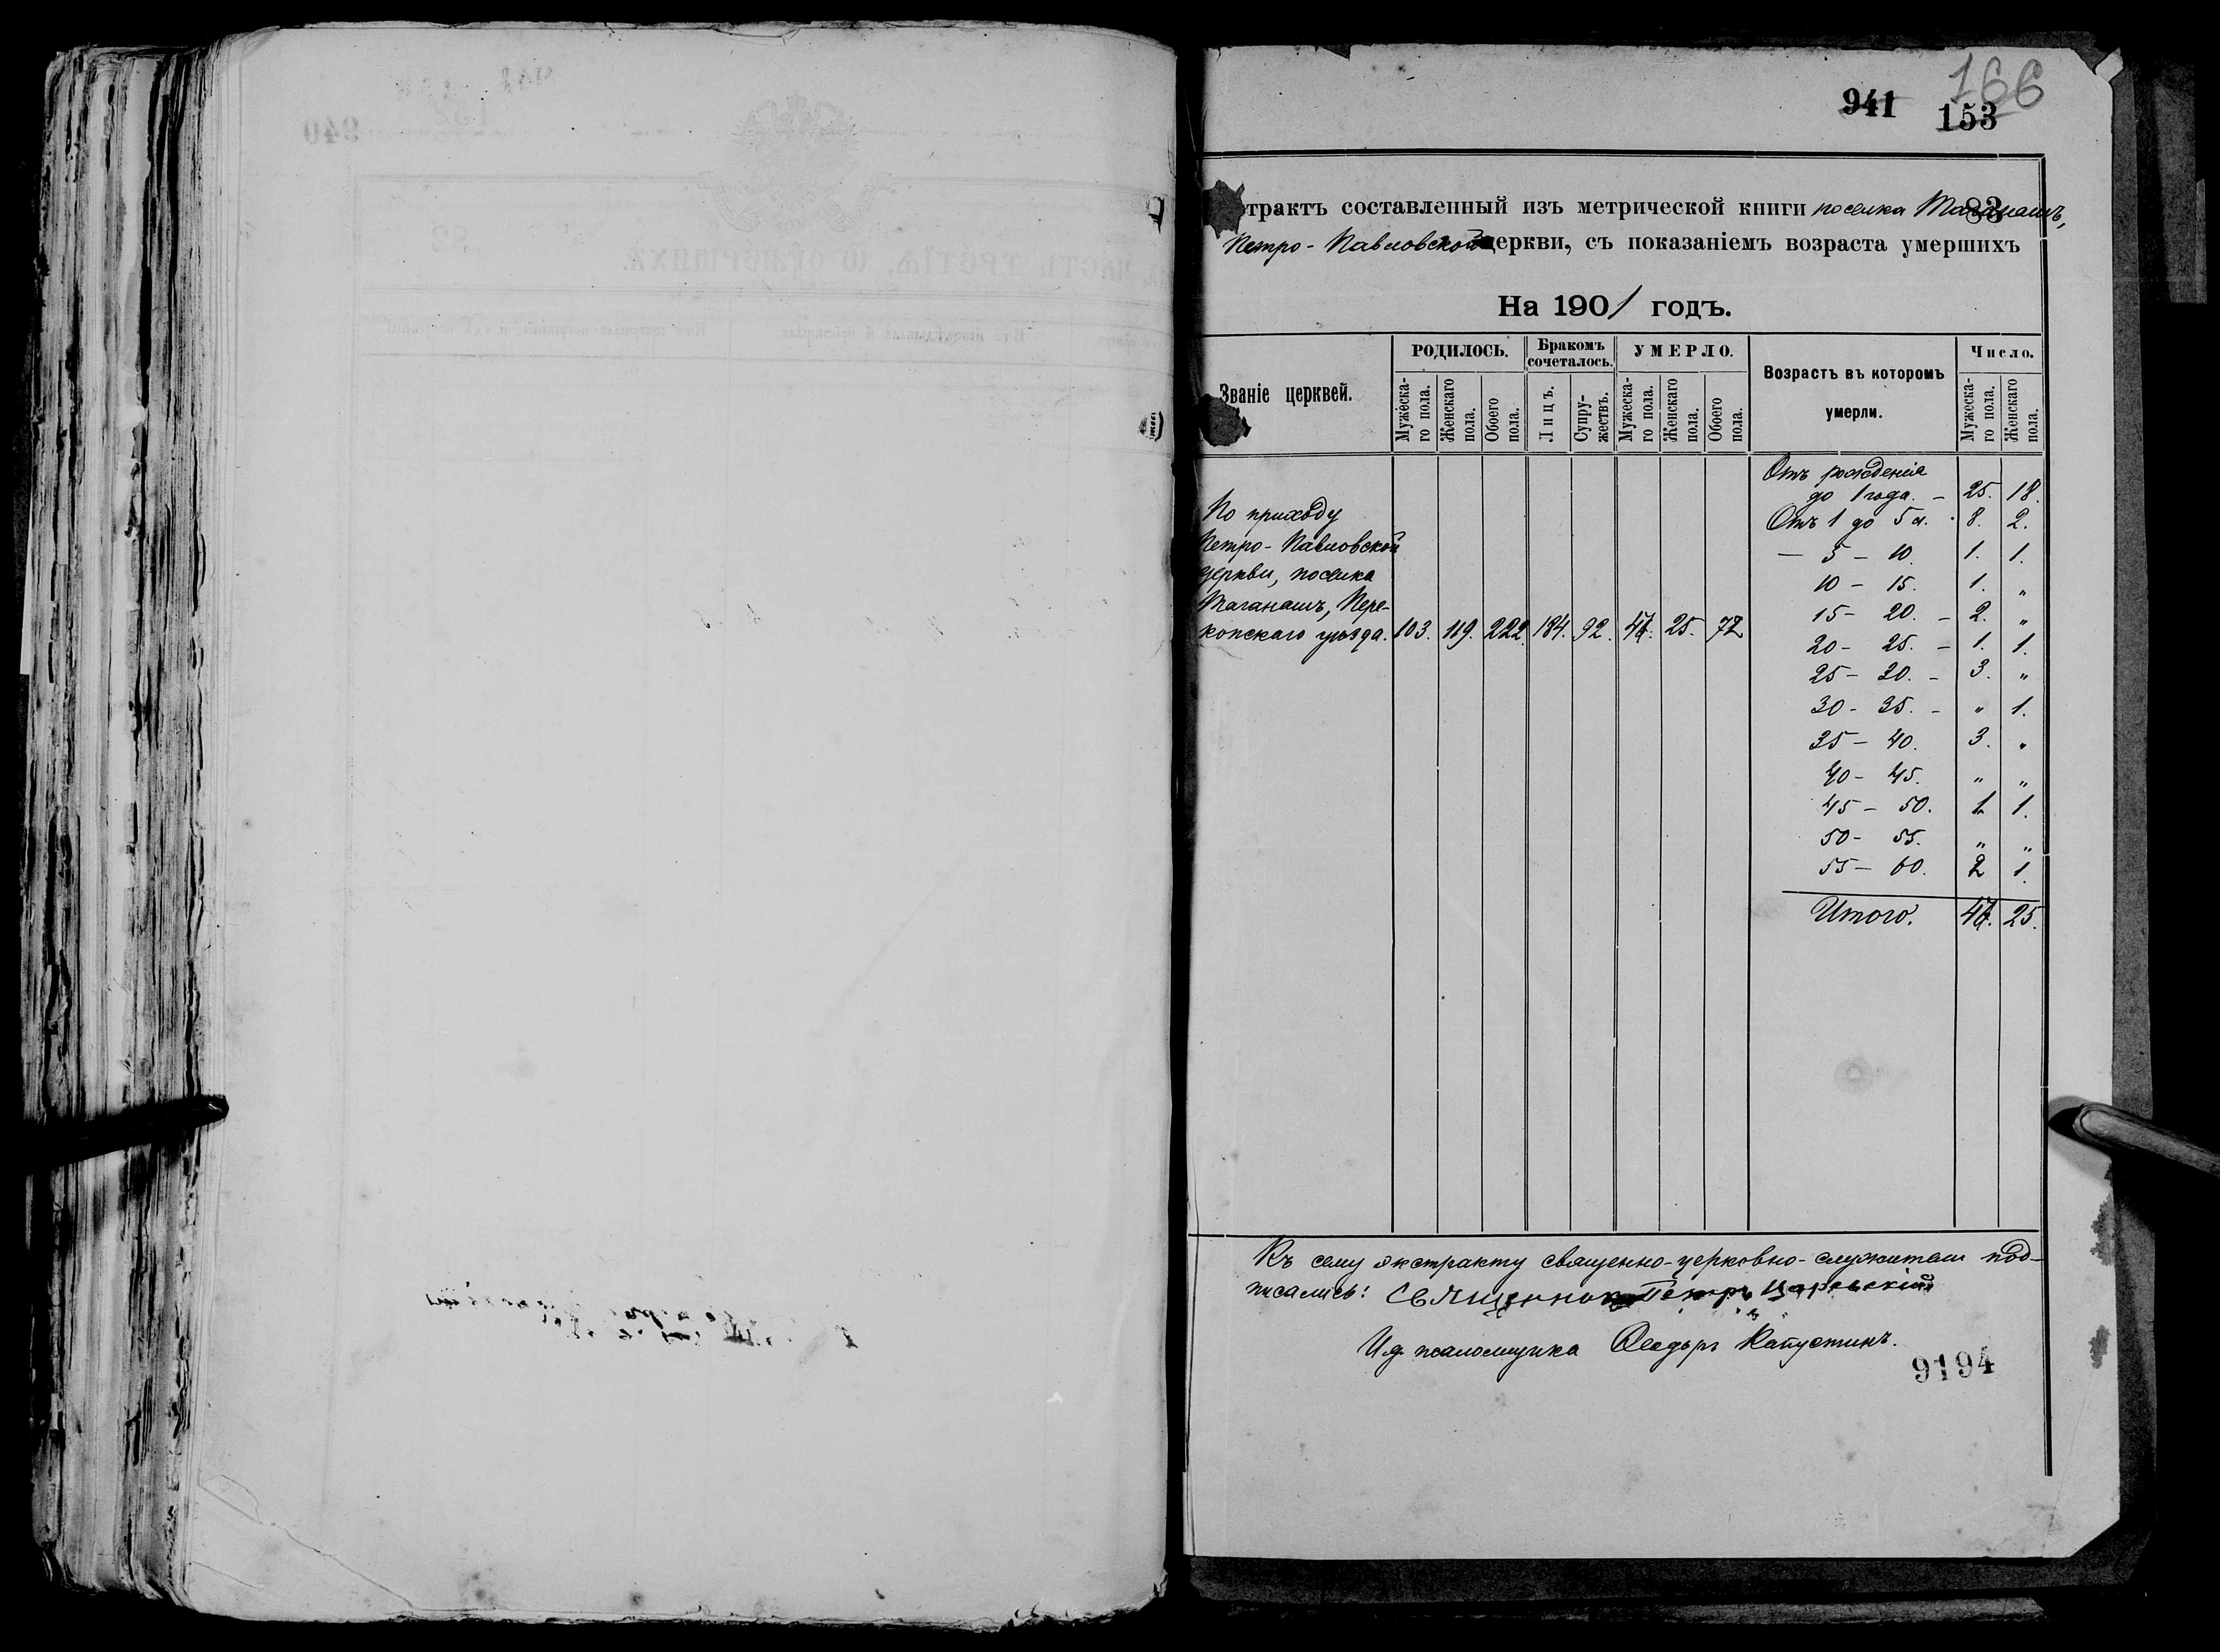 166
941 153
83
трактъ составленный изъ метрической книги поселка Таганашъ,
Петро-Павловской церкви, съ показаніемъ возраста умершихъ
На 1901 годъ.
Званіе церквей.
РОДИЛОСЬ. Бракомъ сочеталось. УМЕРЛО. Возрастъ въ которомъ умерли. Число.
Мужеска-го пола. Женскаго пола. Обоего пола. Лицъ. Супру-жествъ. Мужеска-го пола. Женскаго пола. Обоего пола. Мужеска-го пола. Женскаго пола.
По приходу
Петро-Павловской
церкви, поселка
Таганашъ, Пере-
копскаго уѣзда. 103. 119. 222. 184. 92. 47. 25. 72
Отъ рожденія
до 1 года. – 25. 18.
Отъ 1 до 5 л. 8. 2.
— 5 – 10. 1. 1.
10 – 15. 1. „
15 – 20. – 2. „
20 – 25. – 1. 1.
25 – 30. – 3. „
30 – 35. – „ 1.
35 – 40. 3. „
40 – 45. „ „
45 – 50. 1. 1.
50 – 55. „ „
55 – 60. 2 1.
Итого. 47. 25.
Къ сему экстракту священно-церковно-служители под-
писались: Священникъ Петръ
И.д. псаломщика Ѳеодоръ Капустинъ.
9194
940
ЧАСТЬ ТРЕТІЯ, О УМЕРШИХЪ.